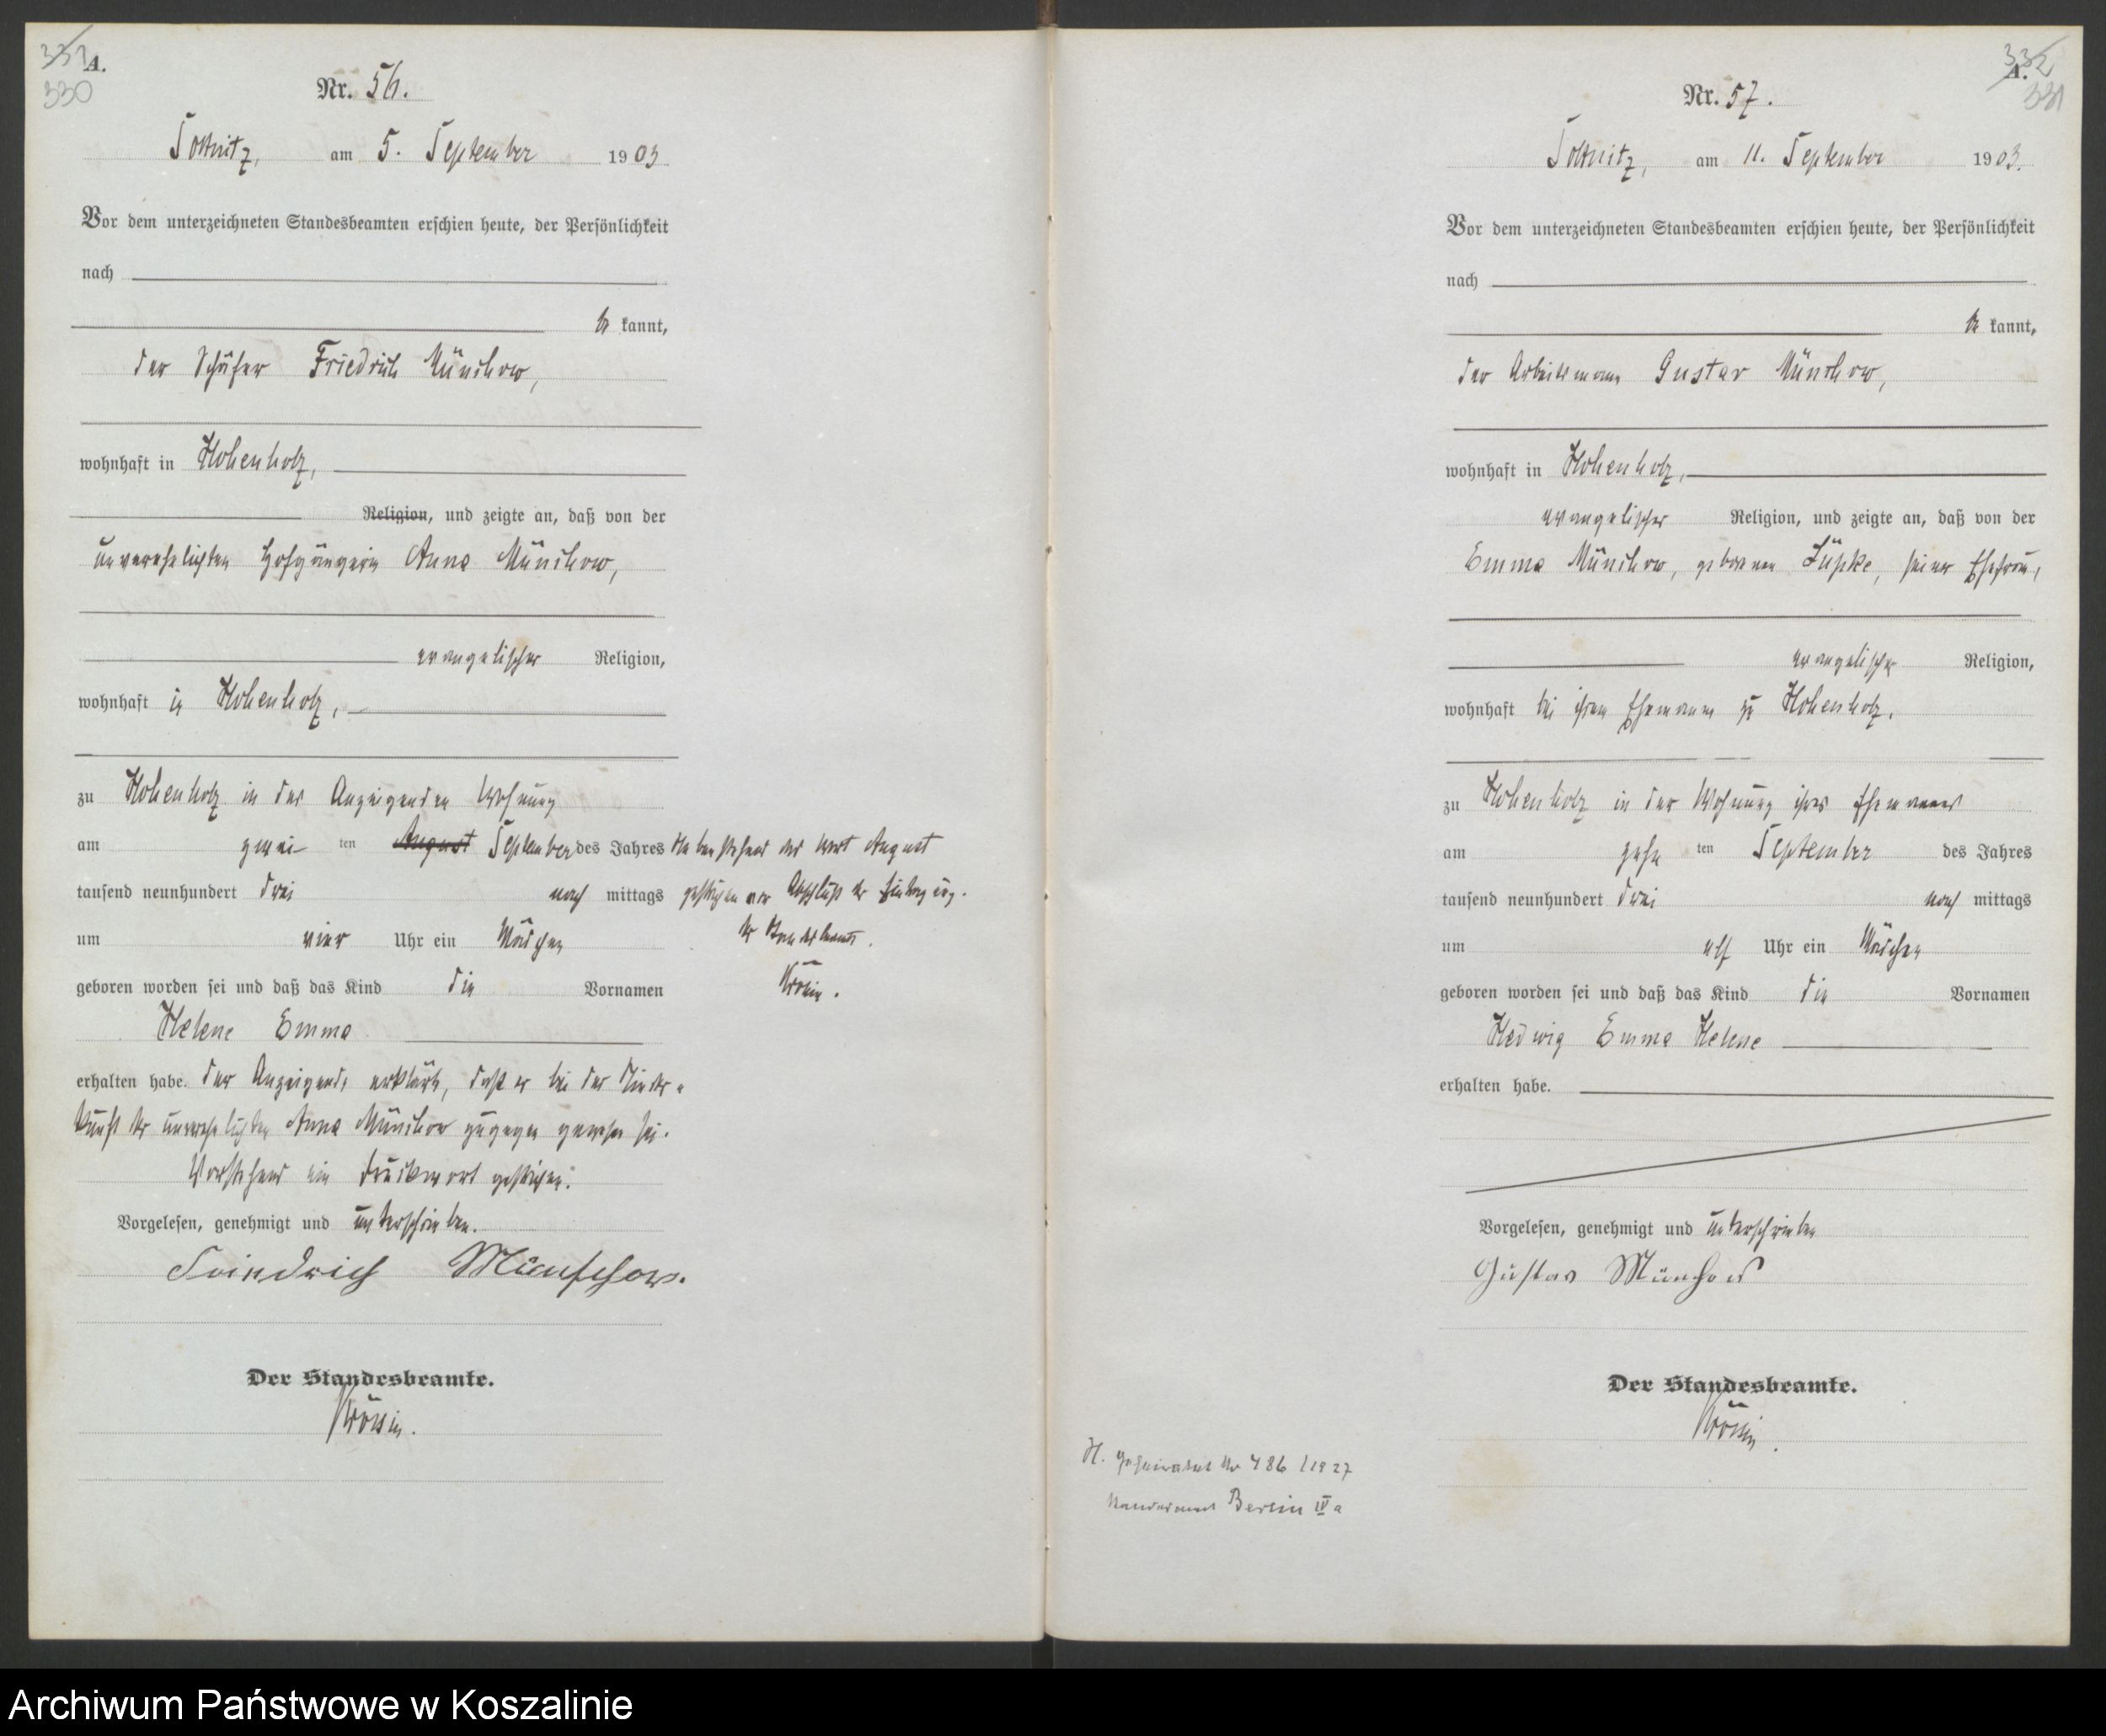 331
A.
330
Nr. 56.
Soltnitz, am 5. September 1903
Vor dem unterzeichneten Standesbeamten erschien heute, der Persönlichkeit
nach
be kannt,
der Schäfer Friedrich Münchow,
wohnhaft in Hohenholz,
Religion, und zeigte an, daß von der
unverehelichten Hofgängerin Anna Münchow,
evangelischer Religion,
wohnhaft in Hohenholz,
zu Hohenholz in des Anzeigenden Wohnung
am zwei ten August September des Jahres
tausend neunhundert drei nach mittags
um vier Uhr ein Mädchen
geboren worden sei und daß das Kind die Vornamen
Helene Emma
erhalten habe. Der Anzeigende erklärte, daß er bei der Nieder-
kunft der unverehelichten Anna Münchow zugegen gewesen sei.
Vorstehend ein Druckwort gestrichen.
Vorgelesen, genehmigt und unterschrieben.
Friedrich Münchow.
Der Standesbeamte.
Krösin.
Nebenstehend das Wort August
gestrichen vor Abschluß der Eintragung.
Der Standesbeamte.
Krösin.
332
A.
331
Nr. 57.
Soltnitz, am 11. September 1903.
Vor dem unterzeichneten Standesbeamten erschien heute, der Persönlichkeit
nach
be kannt,
der Arbeitsmann Gustav Münchow,
wohnhaft in Hohenholz,
evangelischer Religion, und zeigte an, daß von der
Emma Münchow, geborenen Lüpke, seiner Ehefrau,
evangelischer Religion,
wohnhaft bei ihrem Ehemann zu Hohenholz.
zu Hohenholz in der Wohnung ihres Ehemannes
am zehn ten September des Jahres
tausend neunhundert drei nach mittags
um elf Uhr ein Mädchen
geboren worden sei und daß das Kind die Vornamen
Hedwig Emma Helene
erhalten habe.
Vorgelesen, genehmigt und unterschrieben
Gustav Münchow
Der Standesbeamte.
Krösin.
H. geheiratet Nr 486/1927
Standesamt Berlin IV a
Archiwum Państwowe w Koszalinie